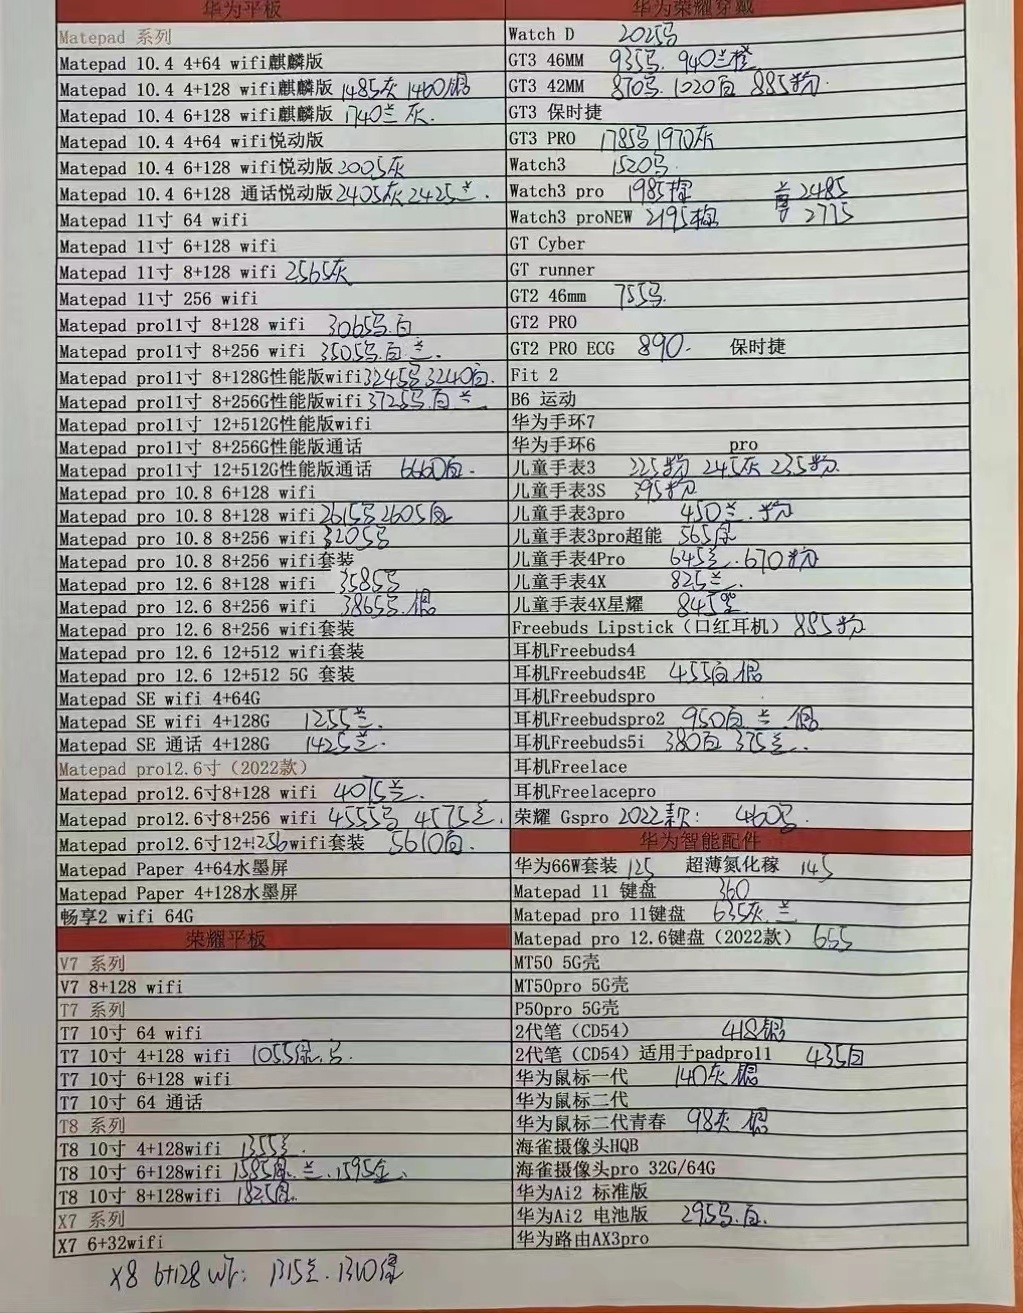 华为平板
Matepad 系列
Matepad 10.4 4+64 wifi麒麟版
Matepad 10.4 4+128 wifi麒麟版 1485灰 1460银
Matepad 10.4 6+128 wifi麒麟版 1740兰 灰.
Matepad 10.4 4+64 wifi悦动版
Matepad 10.4 6+128 wifi悦动版 2005灰
Matepad 10.4 6+128 通话悦动版 2405灰 2425兰.
Matepad 11寸 64 wifi
Matepad 11寸 6+128 wifi
Matepad 11寸 8+128 wifi 2565灰
Matepad 11寸 256 wifi
Matepad pro11寸 8+128 wifi 3065 白
Matepad pro11寸 8+256 wifi 3505 白 兰.
Matepad pro11寸 8+128G性能版wifi 3245 3240白.
Matepad pro11寸 8+256G性能版wifi 3725 白 兰
Matepad pro11寸 12+512G性能版wifi
Matepad pro11寸 8+256G性能版通话
Matepad pro11寸 12+512G性能版通话 6660白.
Matepad pro 10.8 6+128 wifi
Matepad pro 10.8 8+128 wifi 2615 2605
Matepad pro 10.8 8+256 wifi 3205
Matepad pro 10.8 8+256 wifi套装
Matepad pro 12.6 8+128 wifi 3585
Matepad pro 12.6 8+256 wifi 3865 银
Matepad pro 12.6 8+256 wifi套装
Matepad pro 12.6 12+512 wifi套装
Matepad pro 12.6 12+512 5G 套装
Matepad SE wifi 4+64G
Matepad SE wifi 4+128G 1255兰.
Matepad SE 通话 4+128G 1425兰.
Matepad pro12.6寸（2022款）
Matepad pro12.6寸8+128 wifi 4075兰.
Matepad pro12.6寸8+256 wifi 4555 4575兰.
Matepad pro12.6寸12+256wifi套装 5610白.
Matepad Paper 4+64水墨屏
Matepad Paper 4+128水墨屏
畅享2 wifi 64G
荣耀平板
V7 系列
V7 8+128 wifi
T7 系列
T7 10寸 64 wifi
T7 10寸 4+128 wifi 1055
T7 10寸 6+128 wifi
T7 10寸 64 通话
T8 系列
T8 10寸 4+128wifi 1355兰.
T8 10寸 6+128wifi 1585 兰. 1595金.
T8 10寸 8+128wifi 1825
X7 系列
X7 6+32wifi
X8 6+128 wifi: 1315兰. 1310
华为荣耀穿戴
Watch D 2025
GT3 46MM 935 940兰橙
GT3 42MM 870 1020白 885粉.
GT3 保时捷
GT3 PRO 1785 1970灰
Watch3 1520
Watch3 pro 1985棕 兰 2485
Watch3 proNEW 2195棕 2775
GT Cyber
GT runner
GT2 46mm 755
GT2 PRO
GT2 PRO ECG 890. 保时捷
Fit 2
B6 运动
华为手环7
华为手环6 pro
儿童手表3 225粉 245灰 235粉.
儿童手表3S 395粉
儿童手表3pro 450兰.粉
儿童手表3pro超能 565
儿童手表4Pro 645兰.670粉
儿童手表4X 825兰.
儿童手表4X星耀 845
Freebuds Lipstick（口红耳机） 885粉
耳机Freebuds4
耳机Freebuds4E 455白 银
耳机Freebudspro
耳机Freebudspro2 950白 兰 银
耳机Freebuds5i 380白 375兰.
耳机Freelace
耳机Freelacepro
荣耀 Gspro 2022款: 460
华为智能配件
华为66W套装 125 超薄氮化稼 145
Matepad 11 键盘 360
Matepad pro 11键盘 635灰.兰
Matepad pro 12.6键盘（2022款） 655
MT50 5G壳
MT50pro 5G壳
P50pro 5G壳
2代笔（CD54） 418银
2代笔（CD54）适用于padpro11 435白
华为鼠标一代 140灰 银
华为鼠标二代
华为鼠标二代青春 98灰 银
海雀摄像头HQB
海雀摄像头pro 32G/64G
华为Ai2 标准版
华为Ai2 电池版 295 白.
华为路由AX3pro